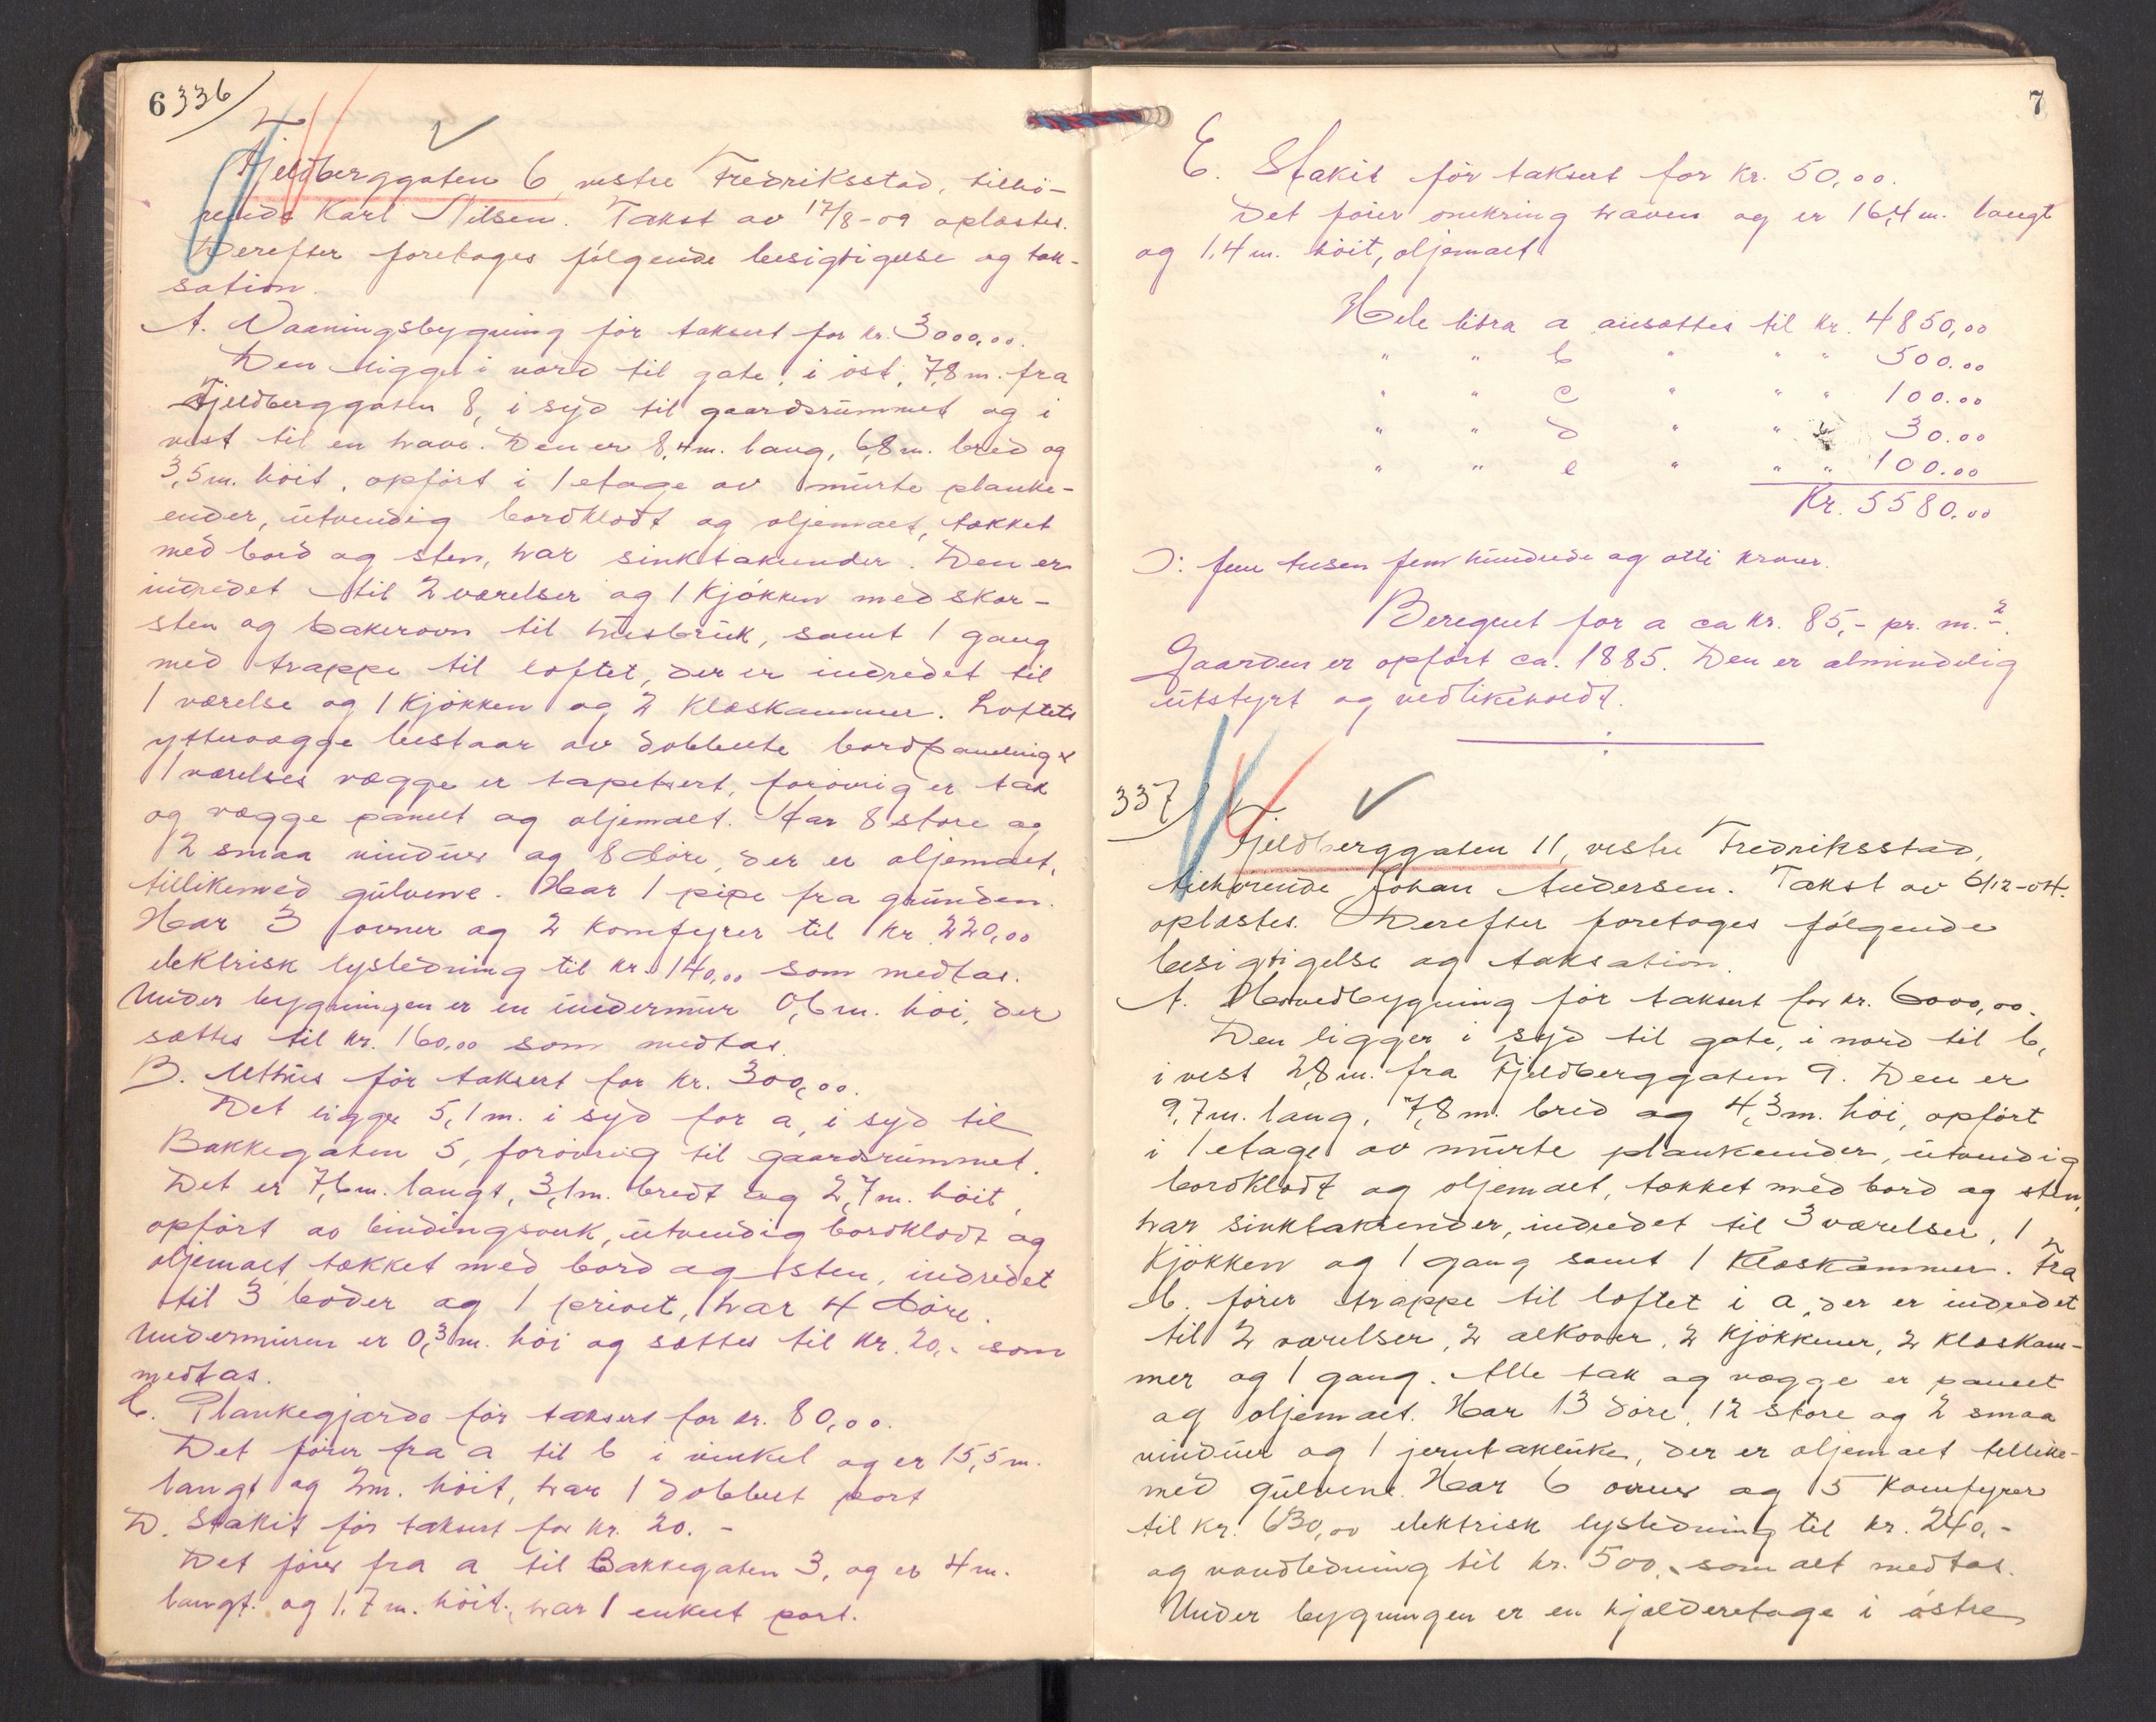 6 336
Fjeldberggaten 6, vestre Fredriksstad, tilhö-
rende Karl Nilsen. Takst av 17/8-09 oplæstes.
Derefter foretoges følgende besigtigelse og tak-
sation.
A. Vaaningsbygning för taksert for kr. 3000,00.
Den ligger i nord til gate, i öst, 7,8 m. fra
Fjeldberggaten 8, i syd til gaardsrummet og i
vest til en have. Den er 8,4 m. lang, 6,8 m. bred og
3,5 m. höit, opfört i 1 etage av murte planke-
ender, utvendig bordklædt og oljemalt, tækket
med bord og sten, har sinktakrender. Den er
indredet til 2 værelser og 1 kjökken med skor-
sten og bakerovn til husbruk, samt 1 gang
med trappe til loftet, der er indredet til
1 værelse og 1 kjökken og 2 klæskammer. Loftets
yttervægge bestaar av dobbelte bordpanelning &
1 værelses vægge er tapetsert, forövrig er tak
og vægge panelt og oljemalt. Har 8 store og
2 smaa vinduer og 8 döre, der er oljemalt,
tillikemed gulvene. Har 1 pipe fra grunden.
Har 3 ovner og 2 komfyrer til kr. 220,00
elektrisk lysledning til kr. 140,00 som medtas.
Under bygningen er en undermur 0,6 m. höi, der
sættes til kr. 160,00 som medtas.
B. Uthus för taksert for kr. 300,00.
Det ligger 5,1 m. i syd for a, i syd til
Bakkegaten 5, forövrig til gaardsrummet.
Det er 7,6 m. langt, 3,1 m. bredt og 2,7 m. höit,
opfört av bindingsverk, utvendig bordklædt og
oljemalt, tækket med bord og sten, indredet
til 3 boder og 1 privet, har 4 döre.
Undermuren er 0,3 m. höi og sættes til kr. 20,- som
medtas.
C. Plankegjærde för taksert for kr. 80,00.
Det förer fra a til b i vinkel og er 15,5 m.
langt og 2 m. höit, har 1 dobbelt port
D. Stakit för taksert for kr. 20.-
Det förer fra a til Bakkegaten 3, og er 4 m.
langt og 1,7 m. höit, har 1 enkelt port.
7
E. Stakit för taksert for kr. 50,00.
Det förer omkring haven og er 16,4 m. langt
og 1,4 m. höit, oljemalt
Hele litra a ansættes til kr. 4850,00
" " b " " " 500.00
" " c " " " 100.00
" " d " " 30.00
" " e " " " 100.00
Kr. 5580.00
ɔ: fem tusen fem hundrede og otti kroner.
Beregnet for a ca kr. 85,- pr. m.2
Gaarden er opfört ca. 1885. Den er almindelig
utstyrt og vedlikeholdt.
337
Fjeldberggaten 11, vestre Fredriksstad,
tilhörende Johan Andersen. Takst av 6/12-04.
oplæstes. Derefter foretoges følgende
besigtigelse og taksation.
A. Hovedbygning för taksert for kr. 6000,00.
Den ligger i syd til gate, i nord til b,
i vest 2,8 m. fra Fjeldberggaten 9. Den er
9,7 m. lang, 7,8 m. bred og 4,3 m. höi, opfört
i 1 etage av murte plankeender, utvendig
bordklædt og oljemalt, tækket med bord og sten,
har sinktakrender, indredet til 3 værelser, 1
kjökken og 1 gang samt 1 klæskammer. Fra
b. förer trappe til loftet i a, der er indredet
til 2 værelser, 2 alkover, 2 kjökkener, 2 klæskam-
mer og 1 gang. Alle tak og vægge er panelt
og oljemalt. Har 13 döre, 12 store og 2 smaa
vinduer og 1 jerntakluke, der er oljemalt tillike-
med gulvene. Har 6 ovner og 5 komfyrer
til kr. 630,00 elektrisk lysledning til kr. 240,-
og vandledning til kr. 500,- som alt medtas.
Under bygningen er en kjælderetage i östre